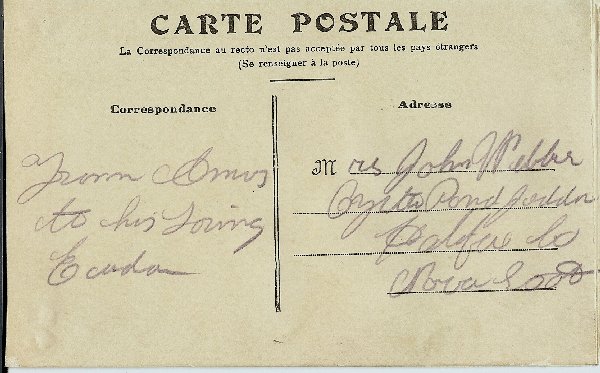 CARTE POSTALE
La Correspondance au recto n'est pas acceptée par tous les pays étrangers
(Se renseigner à la poste)
Correspondance
Adresse
From Amos
to his Loving
M rs John Webber
Oyster Pond Jeddor
Halifax Co
Nova Scot